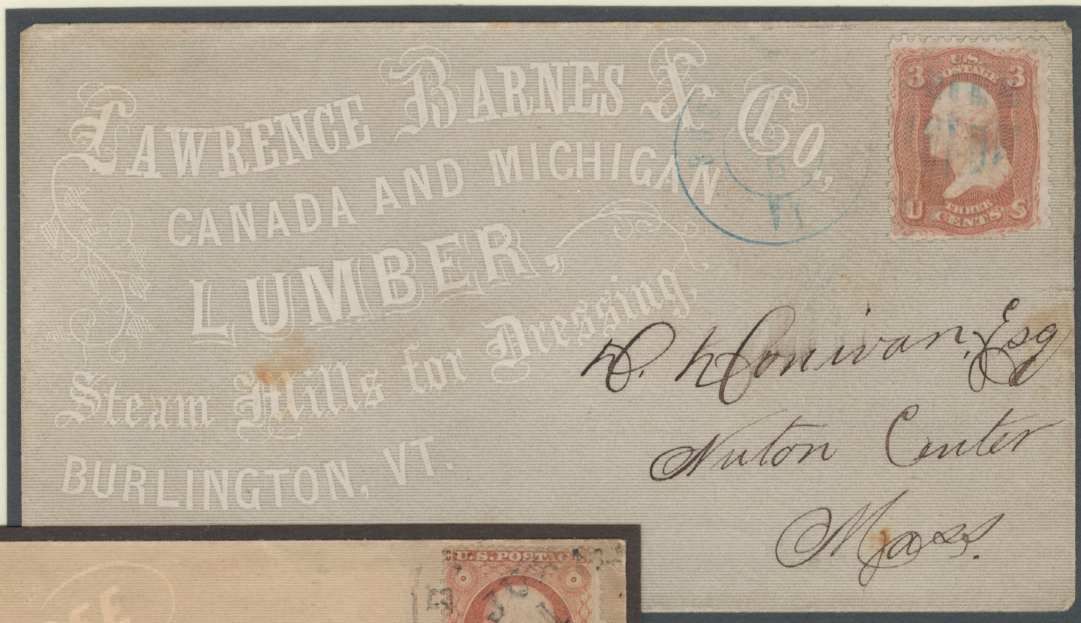 LAWRENCE BARNES & Co.,
CANADA AND MICHIGAN
LUMBER,
Steam Mills for Dressing,
BURLINGTON, VT.
VT
3 U.S. POSTAGE 3
U THREE CENTS S
Esq
Nuton Center
Mass.
U.S. POSTA